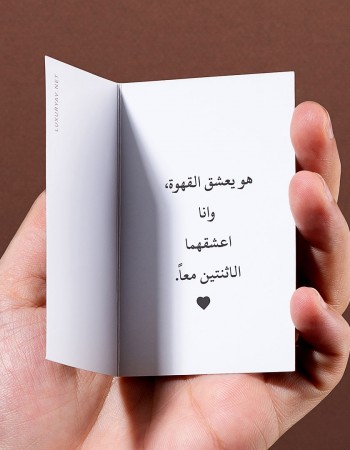 هو يعشق القهوة،
وانا
اعشقهما
الاثنتين معاً.